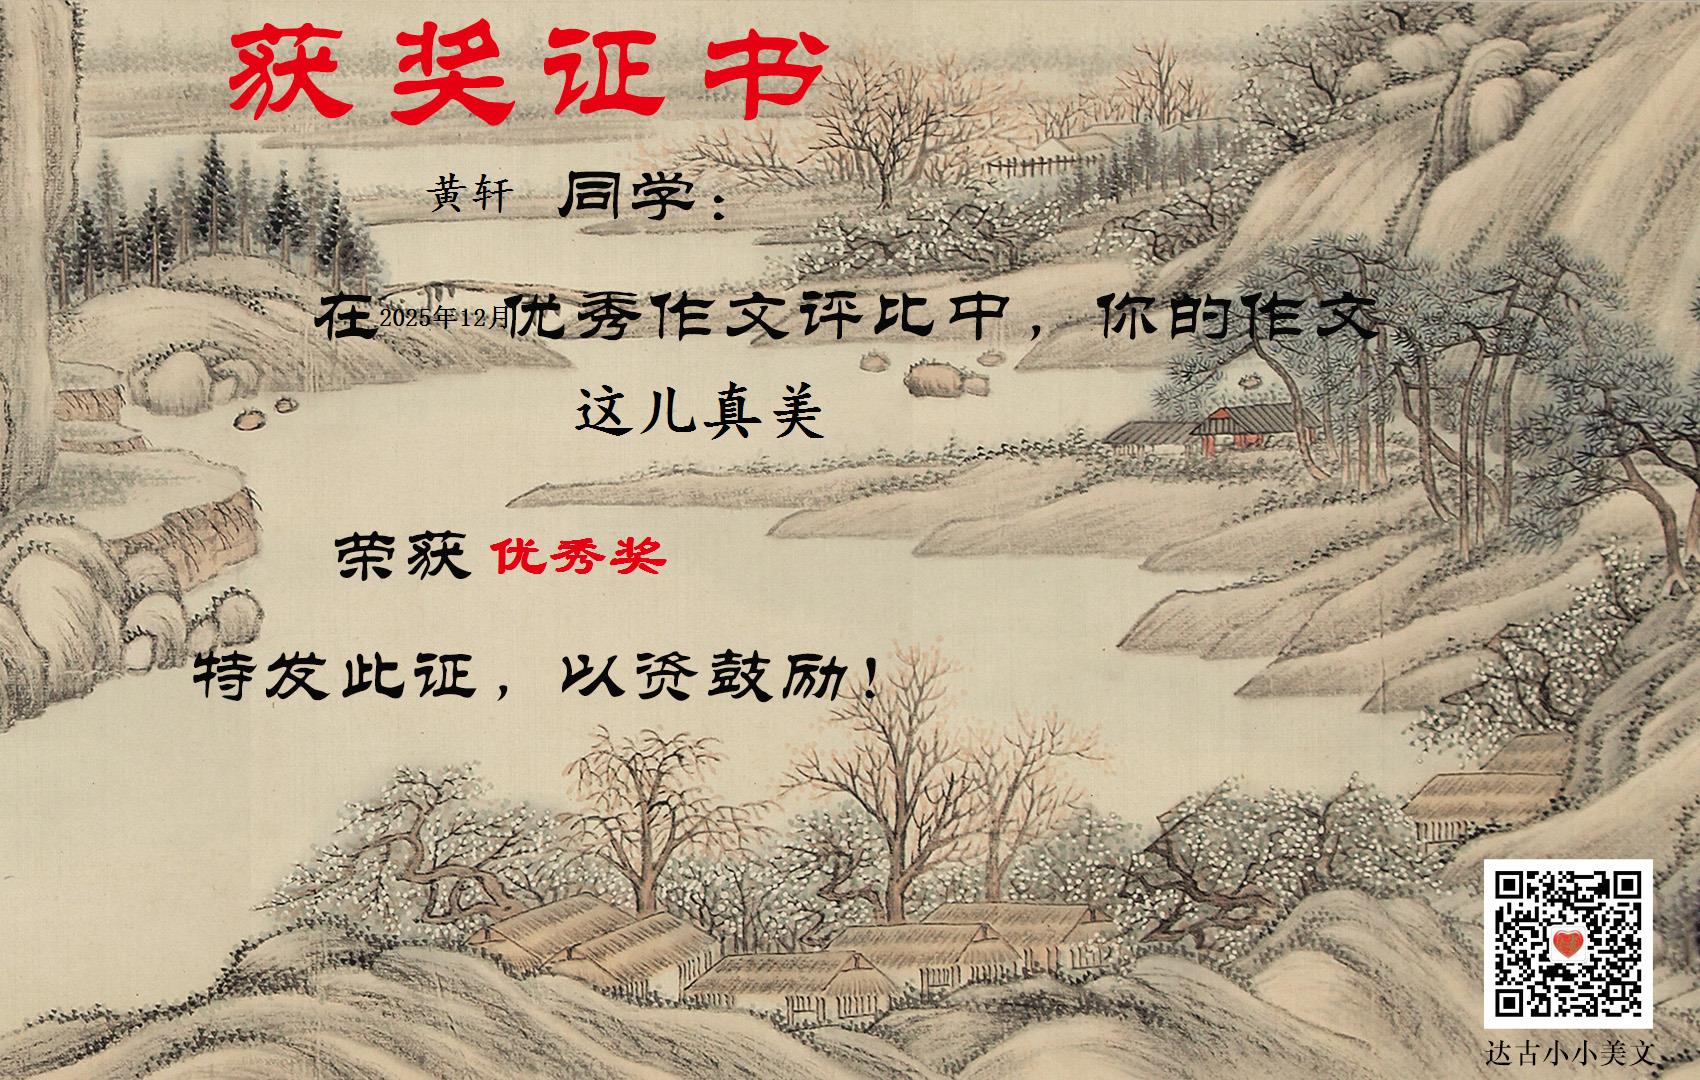 获奖证书
黄轩 同学：
在2025年12月优秀作文评比中，你的作文
这儿真美
荣获 优秀奖
特发此证，以资鼓励！
达古小小美文